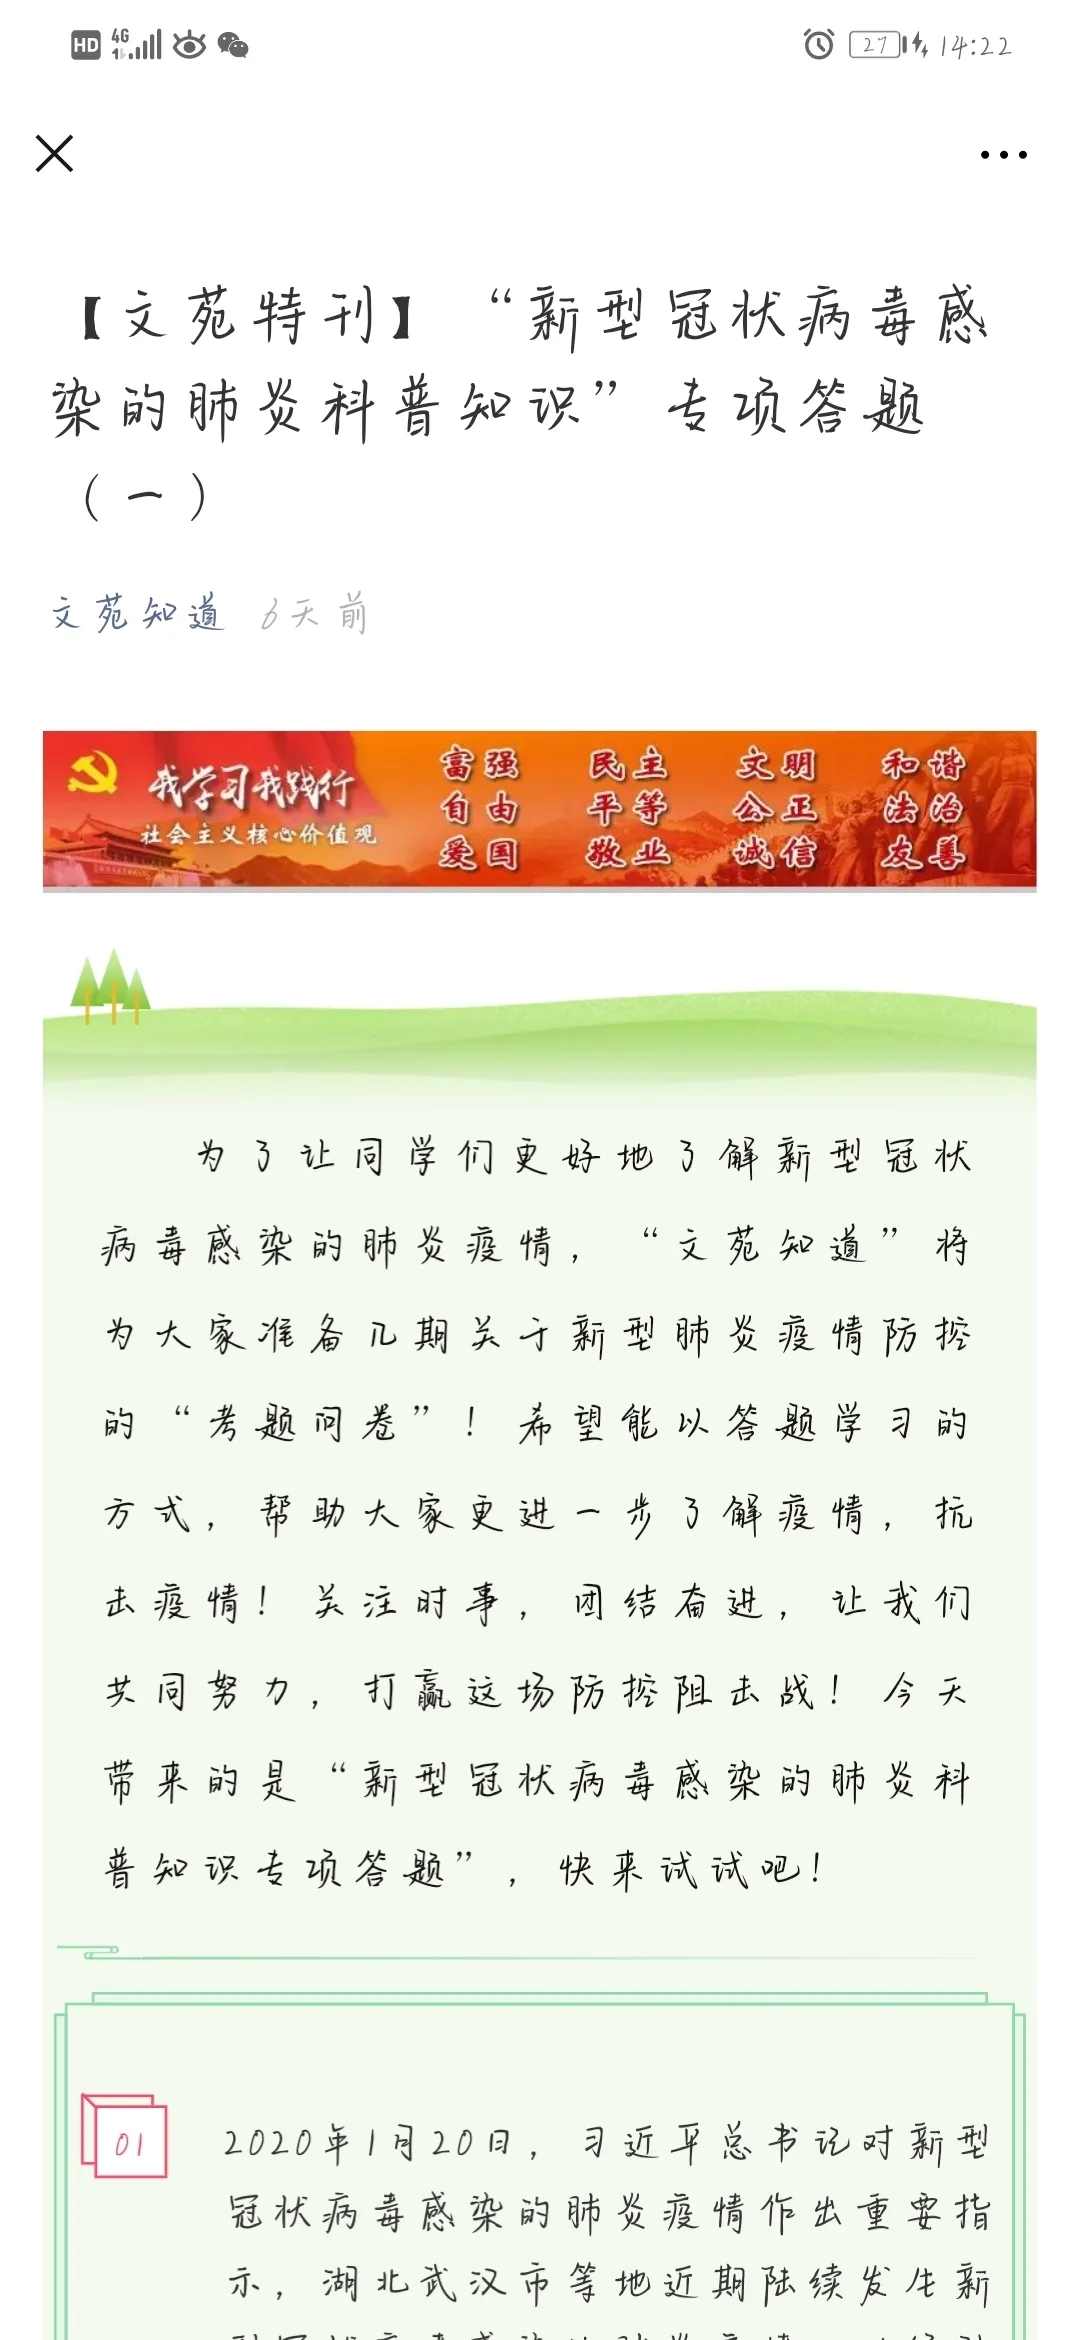 HD 4G 27 14:22
【文苑特刊】“新型冠状病毒感
染的肺炎科普知识”专项答题
（一）
文苑知道 6天前
我学习我践行
社会主义核心价值观
富强 民主 文明 和谐
自由 平等 公正 法治
爱国 敬业 诚信 友善
为了让同学们更好地了解新型冠状
病毒感染的肺炎疫情，“文苑知道”将
为大家准备几期关于新型肺炎疫情防控
的“考题问卷”！希望能以答题学习的
方式，帮助大家更进一步了解疫情，抗
击疫情！关注时事，团结奋进，让我们
共同努力，打赢这场防控阻击战！今天
带来的是“新型冠状病毒感染的肺炎科
普知识专项答题”，快来试试吧！
01
2020年1月20日，习近平总书记对新型
冠状病毒感染的肺炎疫情作出重要指
示，湖北武汉市等地近期陆续发生新